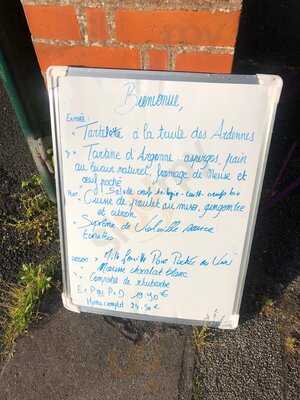 Bienvenue,
Entrée :
Tartelette à la truite des Ardennes
Tartine d'Argenne : asperges, pain
au levain naturel, fromage de Meuse et
œuf poché
Plat :
Cuisse de poulet au miso, gingembre
et citron
Suprême de Volaille sauce
Dessert : Mille feuille Poire Pochée au Vin
Mousse chocolat blanc
Compotée de rhubarbe
E + P ou P + D 19.90€
Menu complet 24.50€